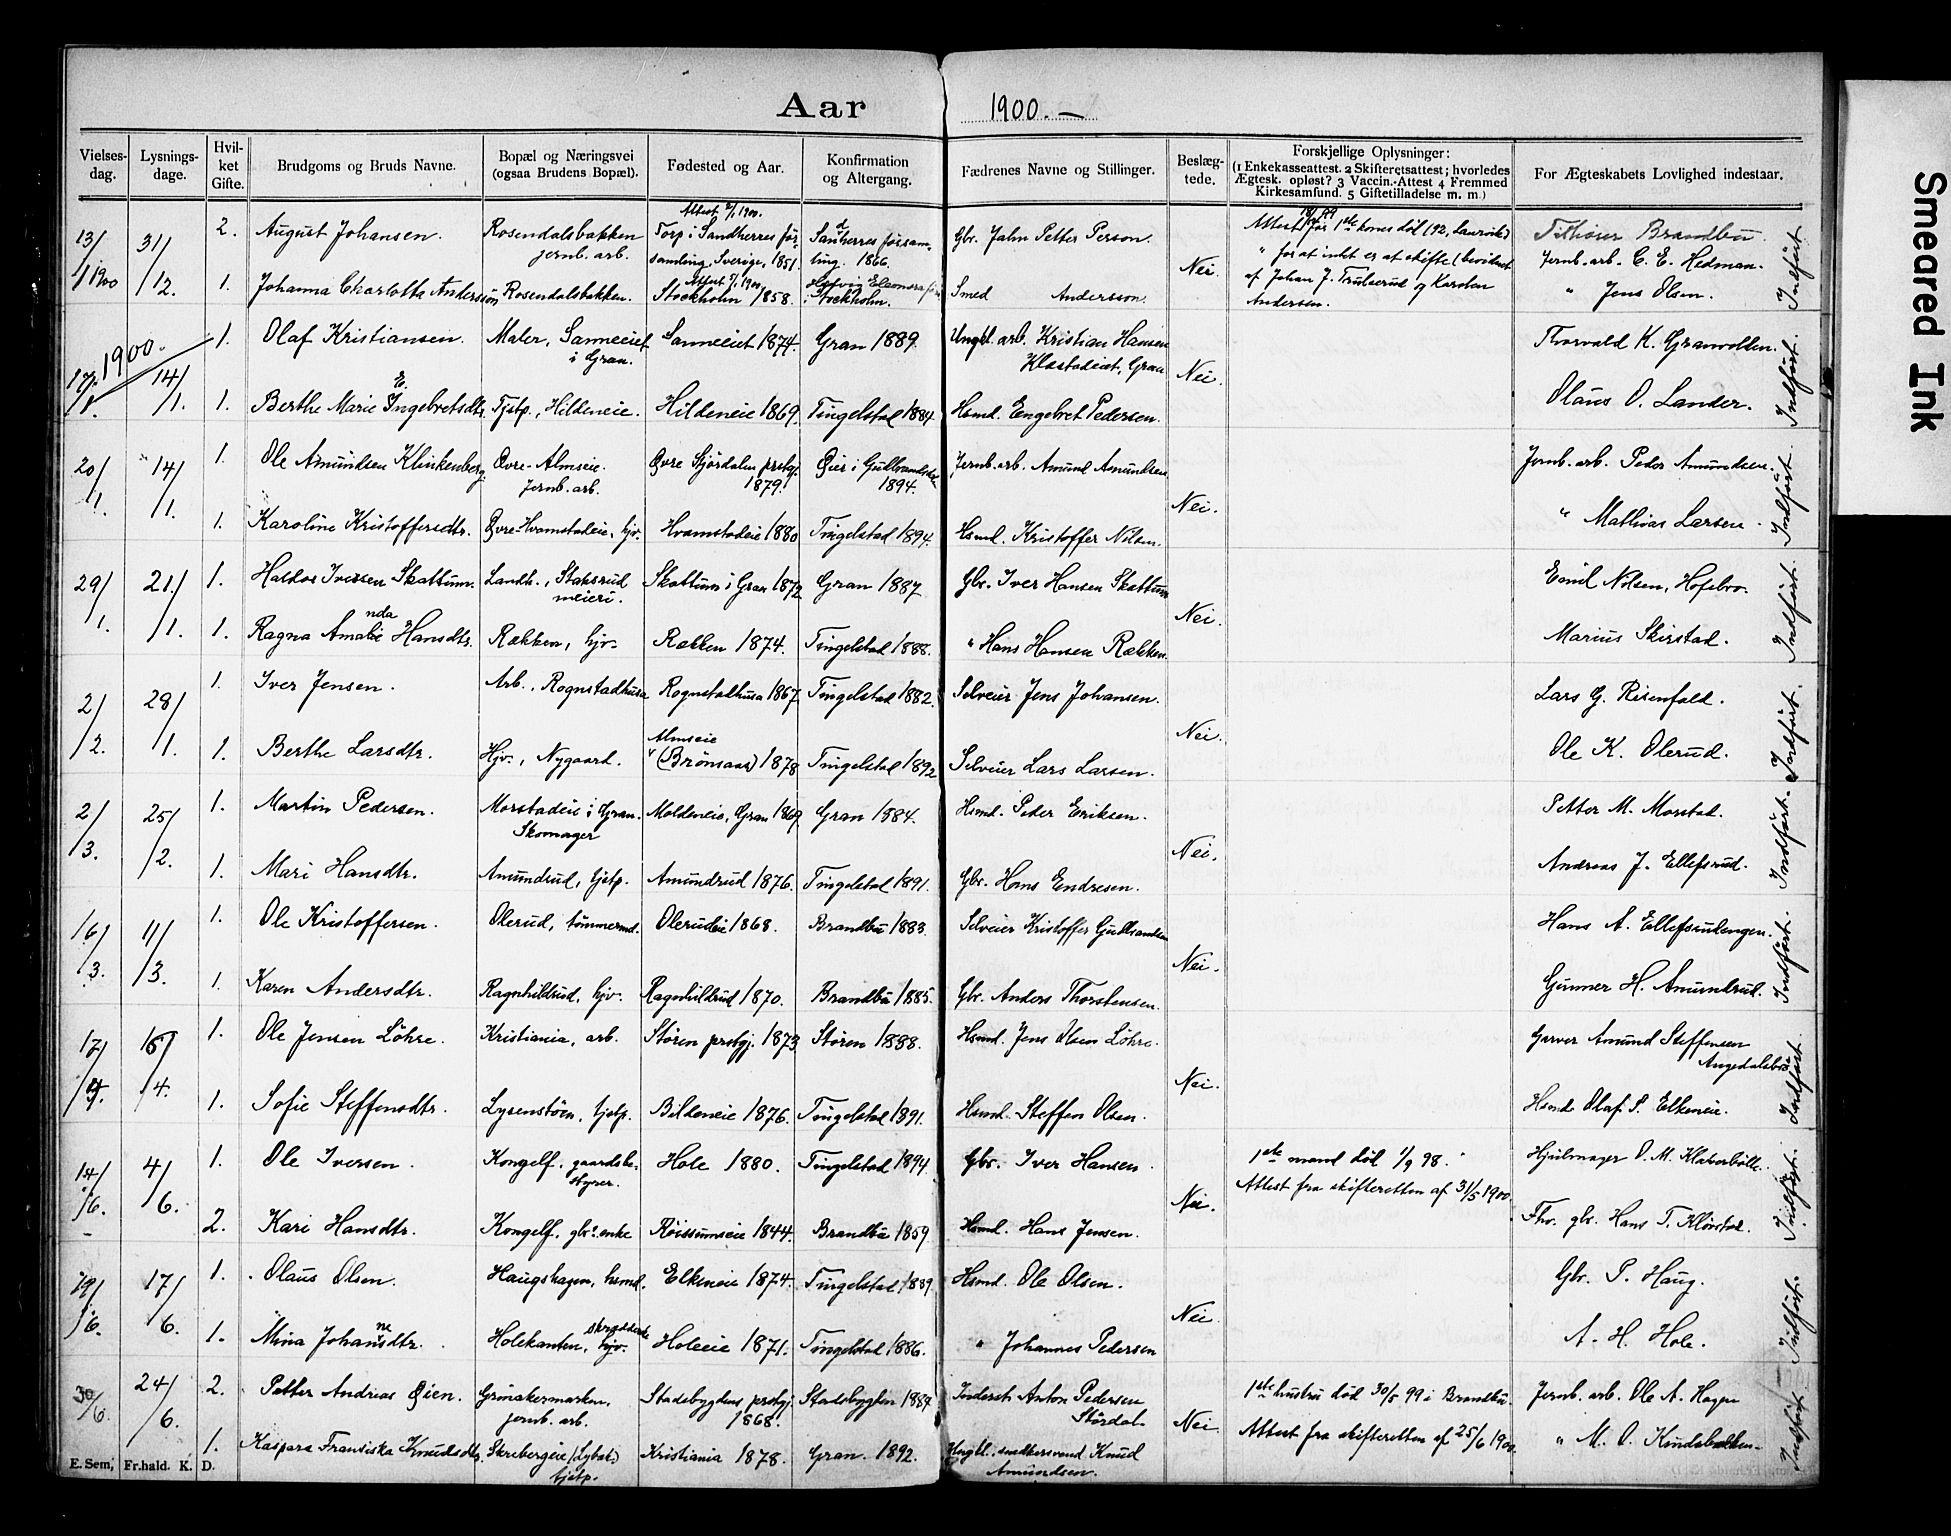 Aar 1900. —
Vielses-dag. Lysnings-dage. Hvil-ket Gifte. Brudgoms og Bruds Navne. Bopæl og Næringsvei (ogsaa Brudens Bopæl). Fødested og Aar. Konfirmation og Altergang. Fædrenes Navne og Stillinger. Beslæg-tede. Forskjellige Oplysninger: (1 Enkekasseattest. 2 Skifteretsattest; hvorledes Ægtesk. opløst? 3 Vaccin.-Attest 4 Fremmed Kirkesamfund. 5 Giftetilladelse m. m.) For Ægteskabets Lovlighed indestaar.
13/1 1900 31/12. 2. August Johansen. Rosendalsbakken jernb. arb. Torp i Sandherres församling, Sverige, 1851. Sandherres församling. 1866. Gbr. Jahn Petter Person. Nei. Brandbu.
1. Johanna Charlotta Andersson, Rosendalsbakken. Stockholm 1858. Stockholm. Smed Andersson. Andersen. Jernb. arb. C. E. Hedman. " Jens Olsen. Indført.
1900.
17/1. 14/1. 1. Olaf Kristiansen. Maler, Sanneeiet i Gran. Sanneeiet 1874. Gran 1889. Ungkl. arb. Kristian Hansen Klæstadeiet, Gran Nei. Thorvald K. Granvolden.
1. Berthe Marie E. Ingebretsdtr. Tjstp., Hildeneie. Hildeneie 1869. Tingelstad 1884. Hsmd. Engebret Pedersen. Olaus O. Lander. Indført.
20/1. 14/1. 1. Ole Amundsen Klinkenberg. Øvre-Almseie. Jernb. arb. Øvre Sjørdalen prstgj. 1879. Øier i Gudbrandsdalen 1894. Jernb. arb. Amund Amundsen Nei. Jernb. arb. Peder Amundsen.
1. Karoline Kristoffersdtr. Øvre-Hvamstadeie, hjv. Hvamstadeie 1880 Tingelstad 1894. Hsmd. Kristoffer Nilsen. " Mathias Larsen. Indført.
29/1. 21/1. 1. Haldor Iversen Skattum. Landh., Staksrud meieri. Skattum i Gran 1872 Gran 1887 Gbr. Iver Hansen Skattum Nei. Emil Nilsen, Hofsbro.
1. Ragna Amanda Hansdtr. Rækken, hjv. Rækken 1874. Tingelstad 1888. " Hans Hansen Rækken. Marius Skirstad. Indført.
2/2. 28/1. 1. Iver Jensen. Arb., Rognstadhusa Rognstadhusa 1867 Tingelstad 1882. Selveier Jens Johansen. Nei. Lars G. Risenfald.
1. Berthe Larsdtr. Hjv., Nygaard. Almseie (Brømsaas) 1878 Tingelstad 1892 Selveier Lars Larsen. Ole K. Olerud. Indført.
2/3. 25/2. 1. Martin Pedersen. Morstadeie i Gran. Skomager Moldeneie, Gran 1869 Gran 1884. Hsmd. Peder Eriksen. Nei. Petter M. Morstad.
1. Mari Hansdtr. Amundrud, tjstp. Amundrud 1876. Tingelstad 1891. Gbr. Hans Endresen. Andreas J. Ellefsrud. Indført.
16/3. 11/3. 1. Ole Kristoffersen. Olerud, tømmermd. Olerudeie 1868. Brandbu 1883. Selveier Kristoffer Gudbrandsen Nei. Hans A. Ellefsrudengen.
1. Karen Andersdtr. Ragnhildrud, hjv. Ragnhildrud 1870. Brandbu 1885. Gbr. Anders Thorstensen. Gunner H. Amundrud. Indført.
17/4. 15/4. 1. Ole Jensen Löhre. Kristiania, arb. Støren prstgj. 1873 Støren 1888. Hsmd. Jens Olsen Löhre. Nei. Garver Amund Steffensen Angedalsbro
1. Sofie Steffensdtr. Lysenstøen, tjstp. Bildeneie 1876. Tingelstad 1891. Hsmd. Steffen Olsen. Hsmd Olaf S. Elkeneie. Indført.
14/6. 4/6. 1. Ole Iversen. Kongelf. gaardsbestyrer. Hole 1880. Tingelstad 1894. Gbr. Iver Hansen Nei. 1ste mand död 1/9 98. Attest fra skifteretten af 31/5 1900. Hjulmager O. M. Klæverbølle.
2. Kari Hansdtr. Kongelf. gbr. enke Røissumseie 1844. Brandbu 1859. Hsmd. Hans Jensen. Fhv. gbr. Hans T. Klønstad. Indført.
29/6. 17/6. 1. Olaus Olsen. Haugshagen, hsmd. Elkeneie 1874. Tingelstad 1889. Hsmd. Ole Olsen. Nei. Gbr. P. Haug.
1. Mina Johannesdtr. Holekanten, skrædderske hjv. Holeeie 1871. Tingelstad 1886. " Johannes Pedersen A. H. Hole. Indført.
30/6. 24/6. 2. Petter Andreas Øien. Grinakermarken. jernb. arb. Stadsbygdens prstgj. 1868. Stadsbygden 1884. Inderst Anton Pedersen Stördal. Nei 1ste hustru død 30/5 99 i Brandbu. Attest fra skifteretten af 25/6 1900. Jernb. arb. Ole A. Hagen
1. Kaspara Fransiska Knudsdtr. Skrebergeie (Lybæk.) tjstp. Kristiania 1878. Gran. 1892. Ungkl. snedkersvend Knud Amundsen. " M. O. Kindsbakken. Indført.
E. Sem, Fr.hald. K. D.
Smeared Ink